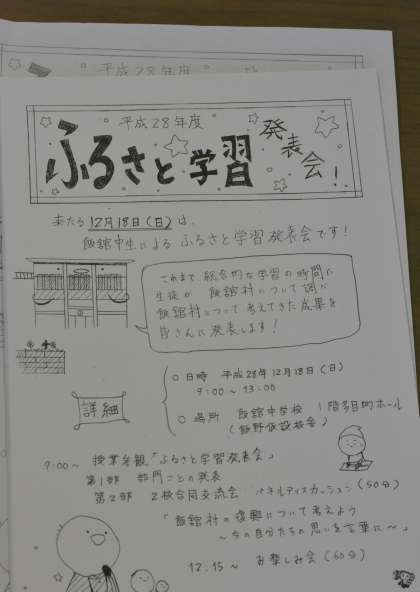 平成28年度
ふるさと学習 発表会!
来たる12月18日(日)は、
飯舘中生による ふるさと学習発表会です!
これまで 総合的な学習の時間に
生徒が 飯舘村について調べ
飯舘村について考えてきた成果を
皆さんに発表します!
詳細
○日時 平成28年12月18日(日)
9:00~13:00
○場所 飯舘中学校 1階多目的ホール
(飯野仮設校舎)
9:00~ 授業参観「ふるさと学習発表会」
第1部 部門ごとの発表
第2部 2校合同交流会 パネルディスカッション(50分)
「飯舘村の復興について考えよう
~今の自分たちの思いを言葉に~」
12:15~ お楽しみ会(60分)